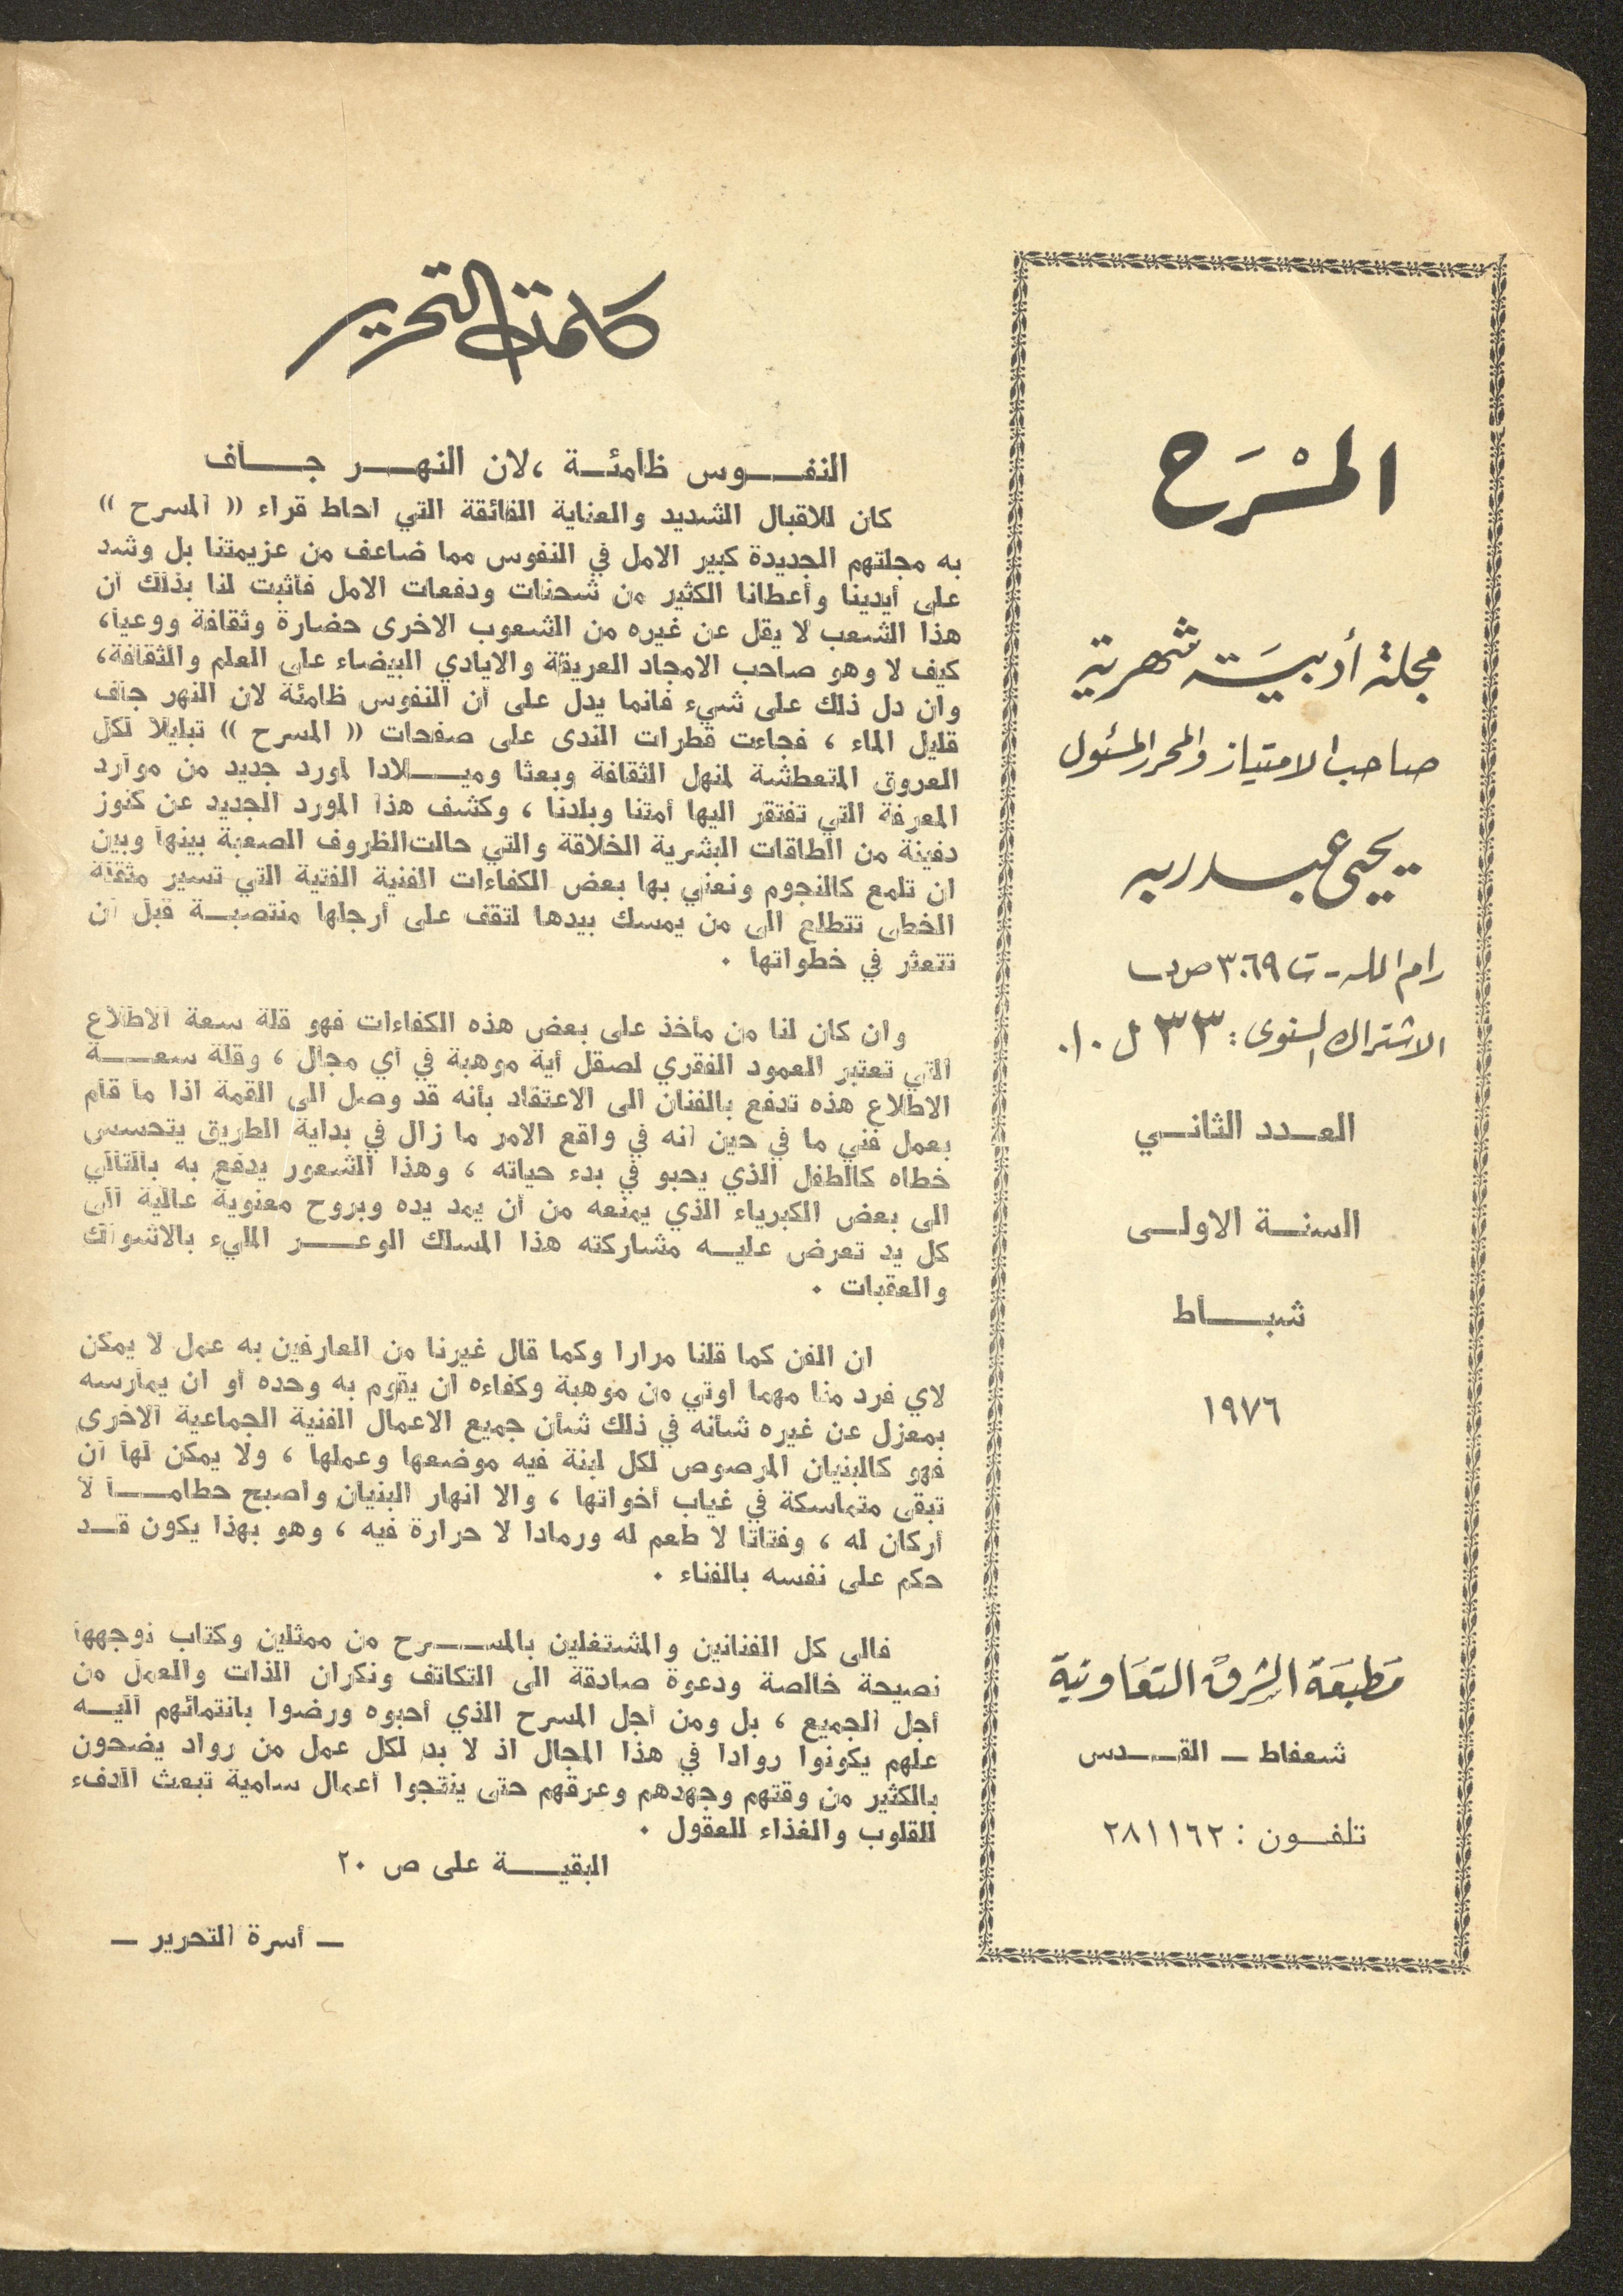 المسْرَح
مجلة أدبيَة شهرية
صاحب الامتياز والمحرر المسئول
يحيى عبد ربه
رام الله - ت ٣٠٦٩ ص ب
الاشتراك السنوى : ٣٣ ل . ا .
العدد الثاني
السنة الاولى
شباط
١٩٧٦
مَطبَعَة الشرق التعَاونية
شعفاط ــ القدس
تلفون : ٢٨١١٦٢
كلمة التحرير
النفوس ظامئة ، لان النهر جاف
كان للاقبال الشديد والعناية الفائقة التي احاط قراء (( المسرح ))
به مجلتهم الجديدة كبير الامل في النفوس مما ضاعف من عزيمتنا بل وشد
على أيدينا وأعطانا الكثير من شحنات ودفعات الامل فأثبت لنا بذلك أن
هذا الشعب لا يقل عن غيره من الشعوب الاخرى حضارة وثقافة ووعيا ،
كيف لا وهو صاحب الامجاد العريقة والايادي البيضاء على العلم والثقافة ،
وان دل ذلك على شيء فانما يدل على أن النفوس ظامئة لان النهر جاف
قليل الماء ، فجاءت قطرات الندى على صفحات (( المسرح )) تبليلا لكل
العروق المتعطشة لمنهل الثقافة وبعثا وميلادا لمورد جديد من موارد
المعرفة التي تفتقر اليها أمتنا وبلدنا ، وكشف هذا المورد الجديد عن كنوز
دفينة من الطاقات البشرية الخلاقة والتي حالت الظروف الصعبة بينها وبين
ان تلمع كالنجوم ونعني بها بعض الكفاءات الفنية الفتية التي تسير مثقلة
الخطى تتطلع الى من يمسك بيدها لتقف على أرجلها منتصبة قبل أن
تتعثر في خطواتها .
وان كان لنا من مأخذ على بعض هذه الكفاءات فهو قلة سعة الاطلاع
التي تعتبر العمود الفقري لصقل أية موهبة في أي مجال ، وقلة سعة
الاطلاع هذه تدفع بالفنان الى الاعتقاد بأنه قد وصل الى القمة اذا ما قام
بعمل فني ما في حين أنه في واقع الامر ما زال في بداية الطريق يتحسس
خطاه كالطفل الذي يحبو في بدء حياته ، وهذا الشعور يدفع به بالتالي
الى بعض الكبرياء الذي يمنعه من أن يمد يده وبروح معنوية عالية الى
كل يد تعرض عليه مشاركته هذا المسلك الوعر المليء بالاشواك
والعقبات .
ان الفن كما قلنا مرارا وكما قال غيرنا من العارفين به عمل لا يمكن
لاي فرد منا مهما اوتي من موهبة وكفاءه ان يقوم به وحده أو ان يمارسه
بمعزل عن غيره شأنه في ذلك شأن جميع الاعمال الفنية الجماعية الاخرى
فهو كالبنيان المرصوص لكل لبنة فيه موضعها وعملها ، ولا يمكن لها أن
تبقى متماسكة في غياب أخواتها ، والا انهار البنيان وأصبح حطاما لا
أركان له ، وفتاتا لا طعم له ورمادا لا حرارة فيه ، وهو بهذا يكون قد
حكم على نفسه بالفناء .
فالى كل الفنانين والمشتغلين بالمسرح من ممثلين وكتاب نوجهها
نصيحة خالصة ودعوة صادقة الى التكاتف ونكران الذات والعمل من
أجل الجميع ، بل ومن أجل المسرح الذي أحبوه ورضوا بانتمائهم اليه
علهم يكونوا روادا في هذا المجال اذ لا بد لكل عمل من رواد يضحون
بالكثير من وقتهم وجهدهم وعرقهم حتى ينتجوا أعمال سامية تبعث الدفء
للقلوب والغذاء للعقول .
البقية على ص ٢٠
ــ أسرة التحرير ــ